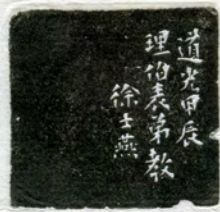 道光甲辰
理伯表弟教
徐士燕